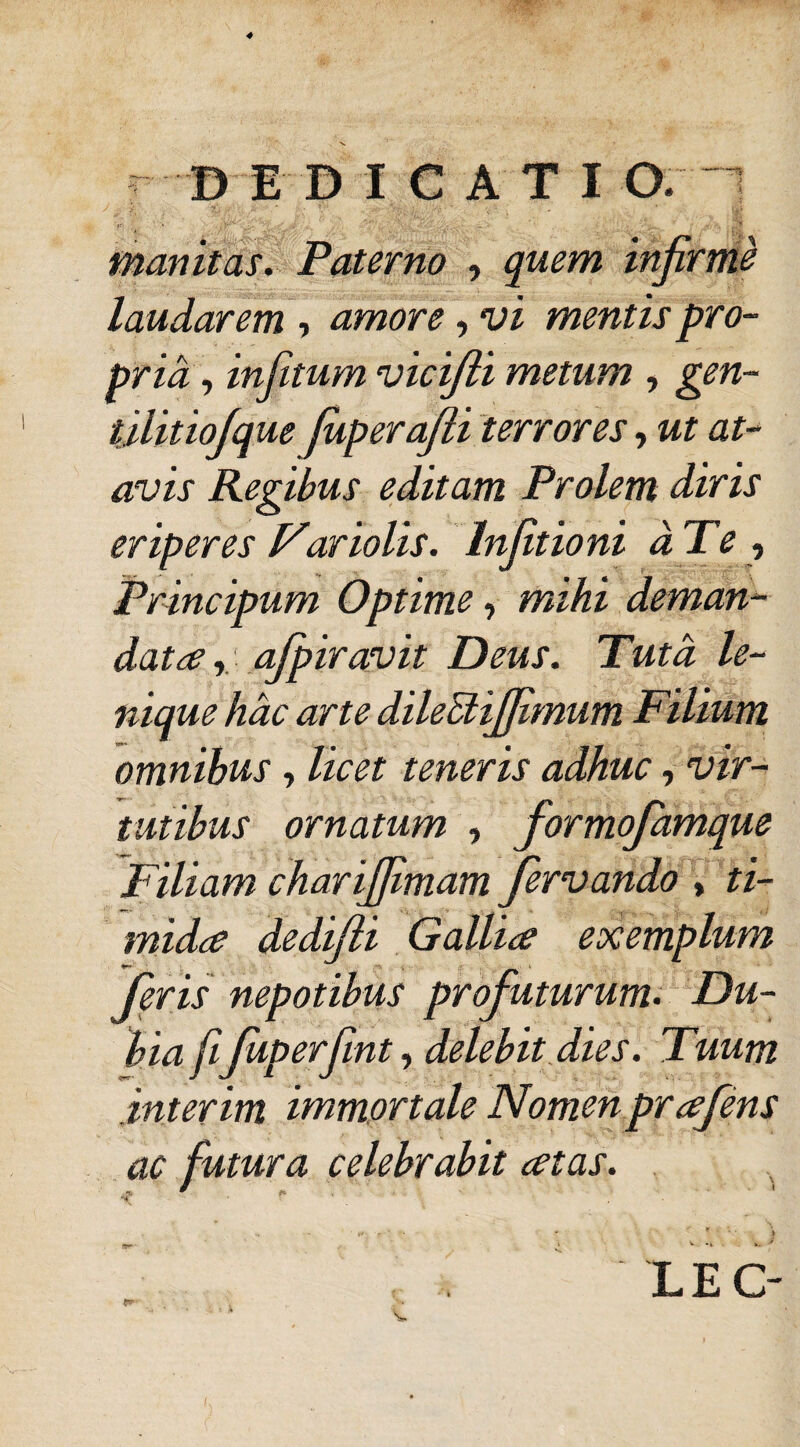 DEDICATIO.
manitas. Paterno , quem infirmè
laudarem , amore , vi mentis pro-
priâ , inſitum viciſti metum , gen-
tilitioſque ſuperaſti terrores , ut at-
avis Regibus editam Prolem diris
eriperes Variolis. Inſitioni à Te ,
Principum Optime , mihi deman-
datæ , aſpiravit Deus. Tutâ le-
nique hâc arte dilectiſſimum Filium
omnibus , licet teneris adhuc , vir-
tutibus ornatum , formoſamque
Filiam chariſſimam ſervando , ti-
midæ dediſti Galliæ exemplum
ſeris nepotibus profuturum. Du-
bia ſi ſuperſint , delebit dies. Tuum
interim immortale Nomen præſens
ac futura celebrabit ætas.
LEC-